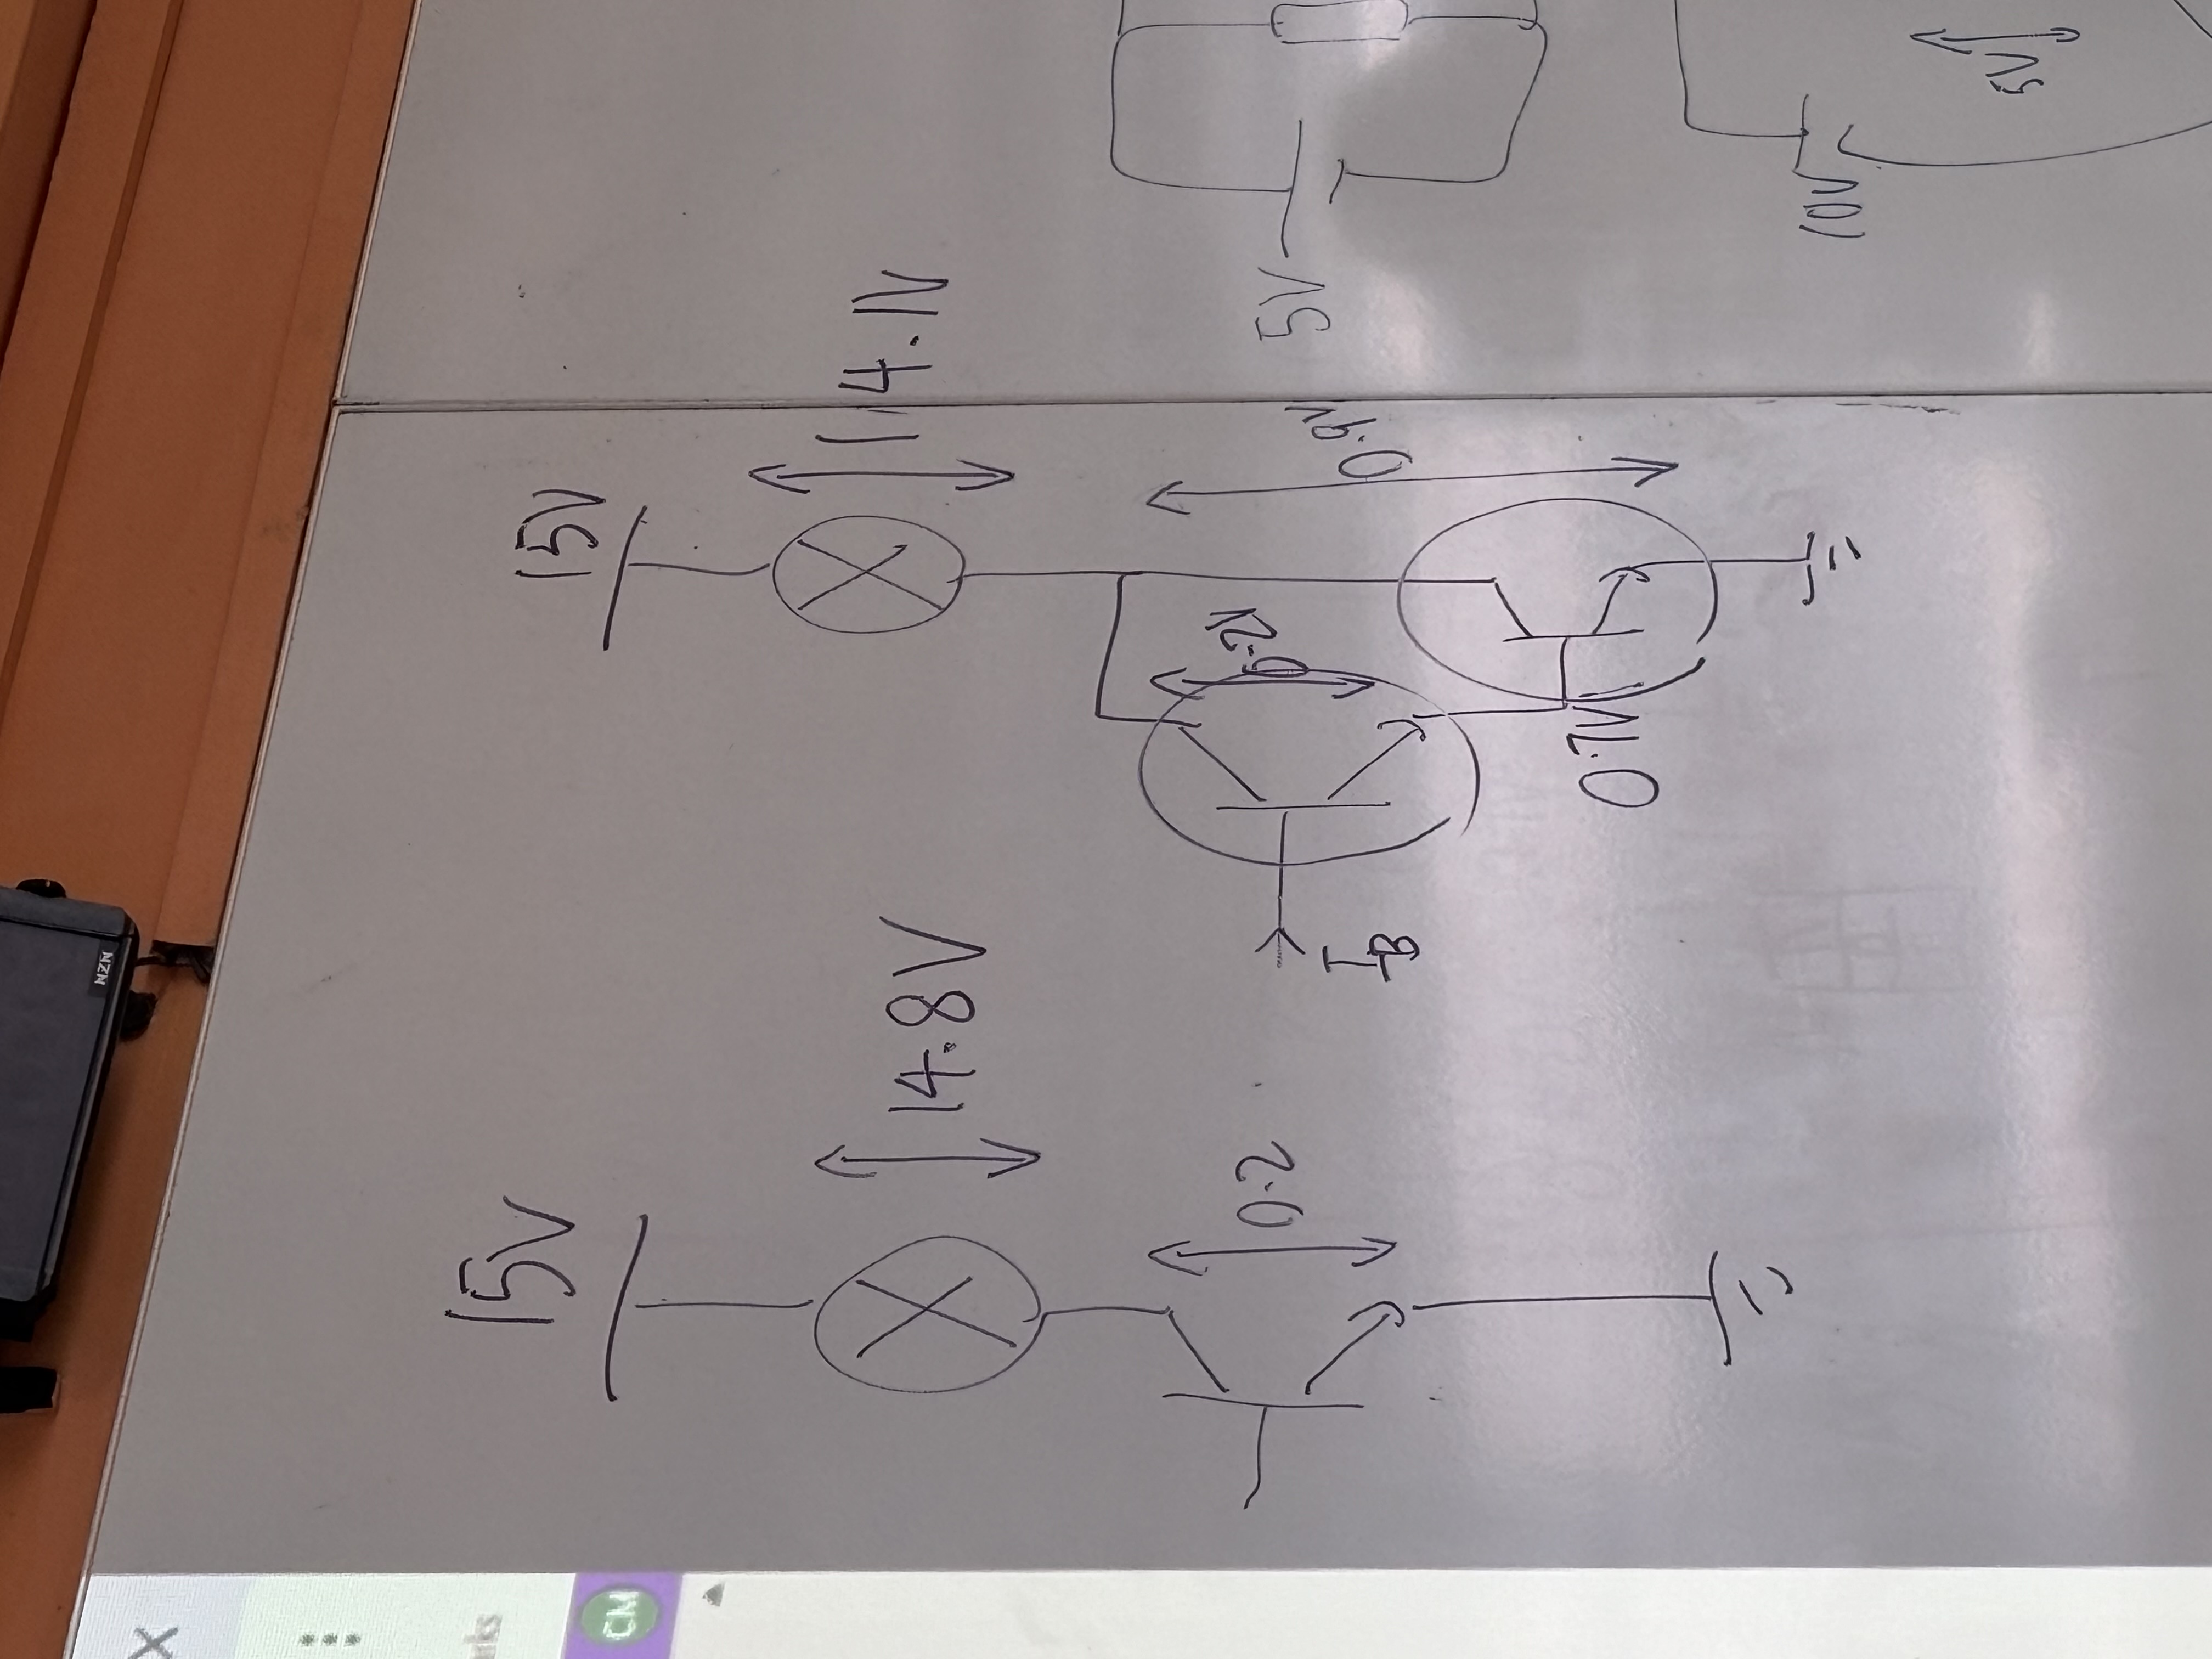 NZN
X
rks
CM
15V
14.8V
0.2
15V
14.1V
0.2V
0.9V
IB
0.7V
5V
10V
5V